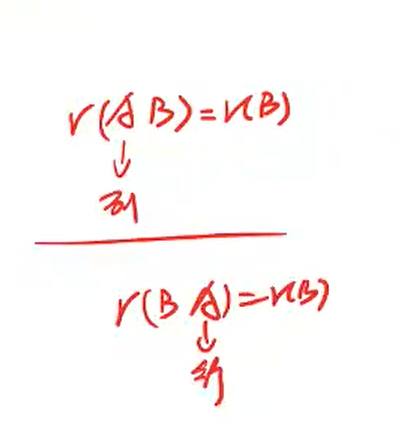 r(AB)=r(B)
↓
列
r(BA)=r(B)
↓
行